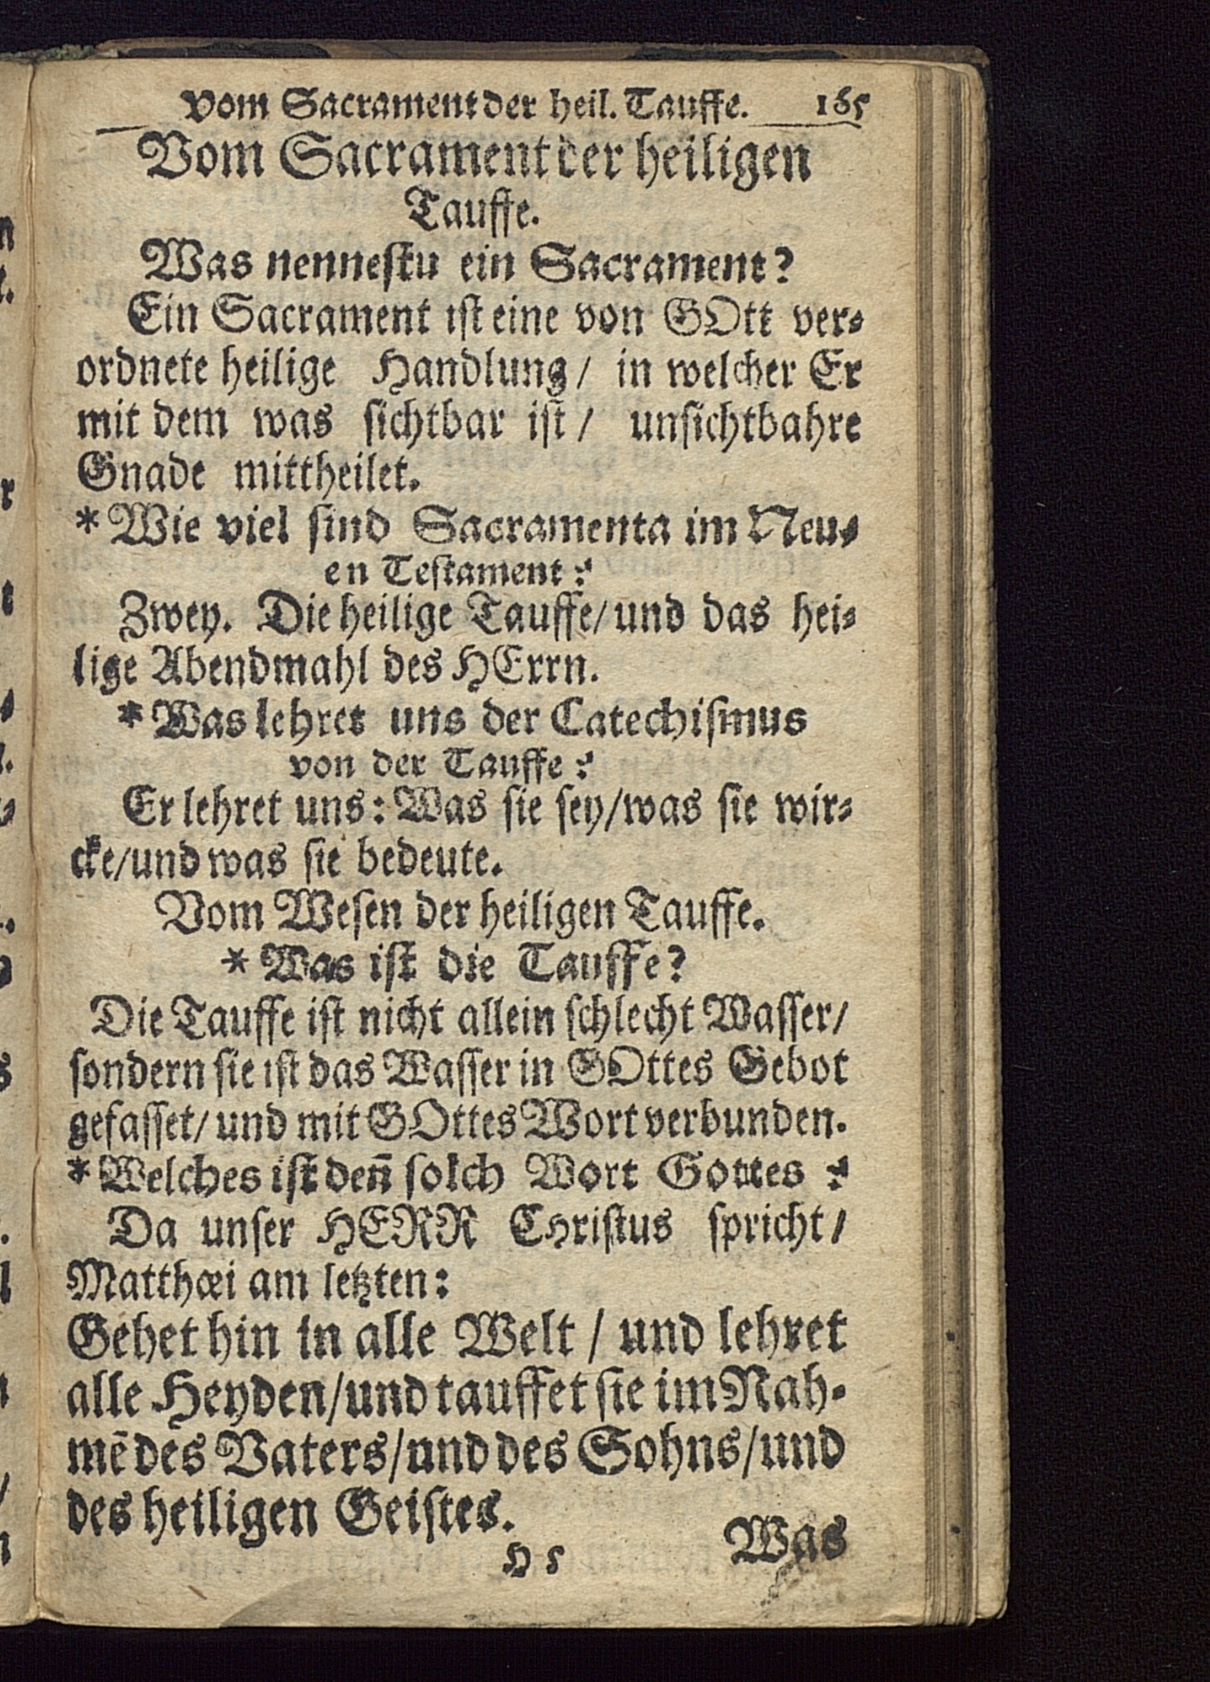 Vom Sacrament der heil. Tauffe. 165
Vom Sacrament der heiligen
Tauffe.
Was nennestu ein Sacrament?
Ein Sacrament ist eine von GOtt ver-
ordnete heilige Handlung/ in welcher Er
mit dem was sichtbar ist/ unsichtbahre
Gnade mittheilet.
* Wie viel sind Sacramenta im Neu-
en Testament?
Zwey. Die heilige Tauffe/ und das hei-
lige Abendmahl des HErrn.
* Was lehret uns der Catechismus
von der Tauffe?
Er lehret uns: Was sie sey/ was sie wir-
cke/ und was sie bedeute.
Vom Wesen der heiligen Tauffe.
* Was ist die Tauffe?
Die Tauffe ist nicht allein schlecht Wasser/
sondern sie ist das Wasser in GOttes Gebot
gefasset/ und mit GOttes Wort verbunden.
* Welches ist deñ solch Wort Gottes?
Da unser HERR CHristus spricht/
Matthæi am letzten:
Gehet hin in alle Welt / und lehret
alle Heyden/ und tauffet sie im Nah-
mẽ des Vaters/ und des Sohns/ und
des heiligen Geistes.
H 5 Was